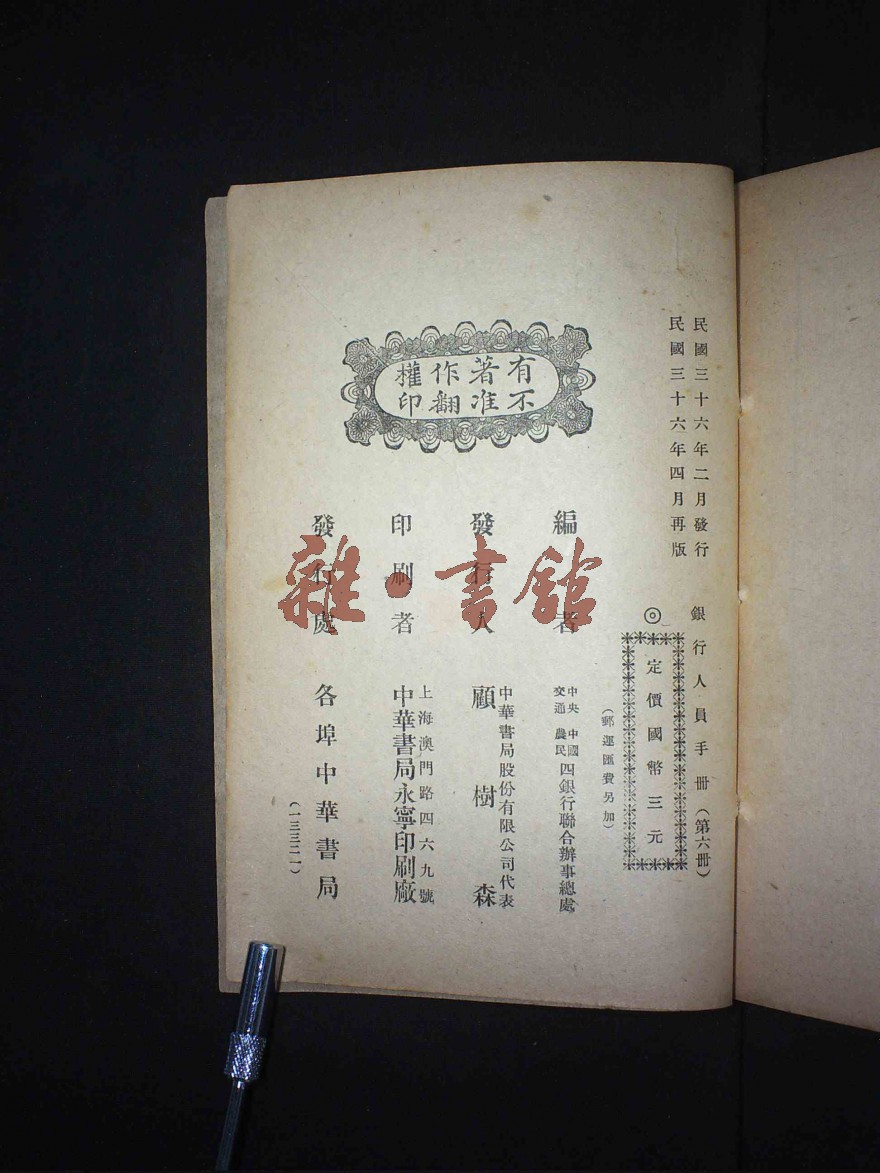 民國三十六年二月發行
民國三十六年四月再版
銀行人員手冊(第六冊)
◎定價國幣三元
(郵運匯費另加)
有著作權
不准翻印
編者
中央 中國
交通 農民
四銀行聯合辦事總處
發行人
中華書局股份有限公司代表
顧樹森
印刷者
上海澳門路四六九號
中華書局永寧印刷廠
發行處
各埠中華書局
(一三三二一)
雜·書館